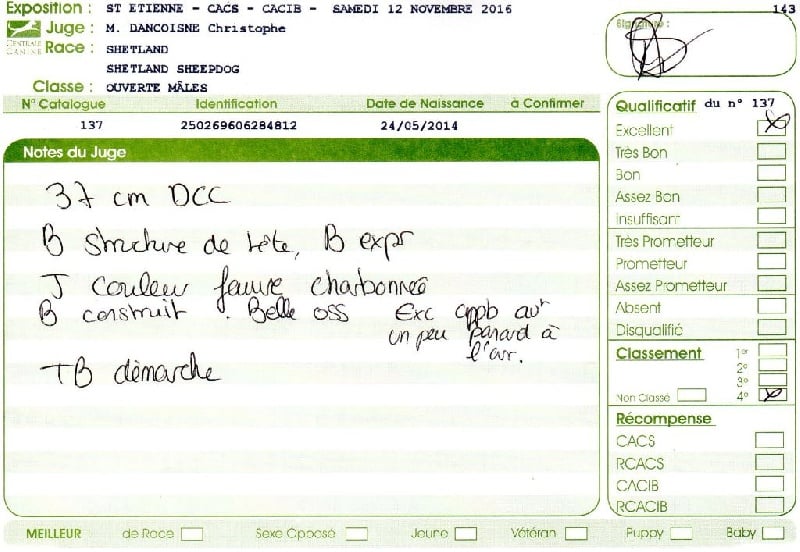 Exposition : ST ETIENNE - CACS - CACIB - SAMEDI 12 NOVEMBRE 2016
143
Juge : M. DANCOISNE Christophe
Signature :
CENTRALE CANINE
Race : SHETLAND
SHETLAND SHEEPDOG
Classe : OUVERTE MÂLES
N° Catalogue Identification Date de Naissance à Confirmer
137 250269606284812 24/05/2014
Notes du Juge
37 cm DCC
B structure de tête, B expr
J couleur fauve charbonnée
B construit . Belle oss Exc app av
un peu panard à
l'arr.
TB démarche
Qualificatif du n° 137
Excellent
Très Bon
Bon
Assez Bon
Insuffisant
Très Prometteur
Prometteur
Assez Prometteur
Absent
Disqualifié
Classement 1er
2e
3e
Non Classé 4e
Récompense
CACS
RCACS
CACIB
RCACIB
MEILLEUR de Race Sexe Opposé Jeune Vétéran Puppy Baby